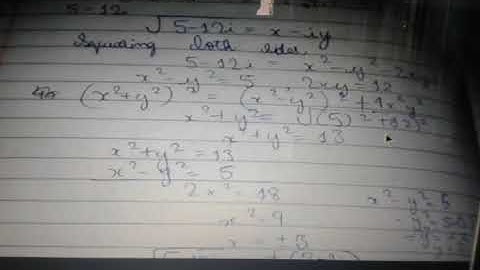 5-12i
√5-12i = x - iy
Squaring both sides,
5-12i = x² - y² - 2xyi
x² - y² = 5 2xy = 12
(x²+y²)² = (x²-y²)² + 4x²y²
x²+y² = √(5)²+(12)²
x+y² = 13
x²+y² = 13
x²-y² = 5
2x² = 18
x² = 9
x = ±3
x²-y²=5